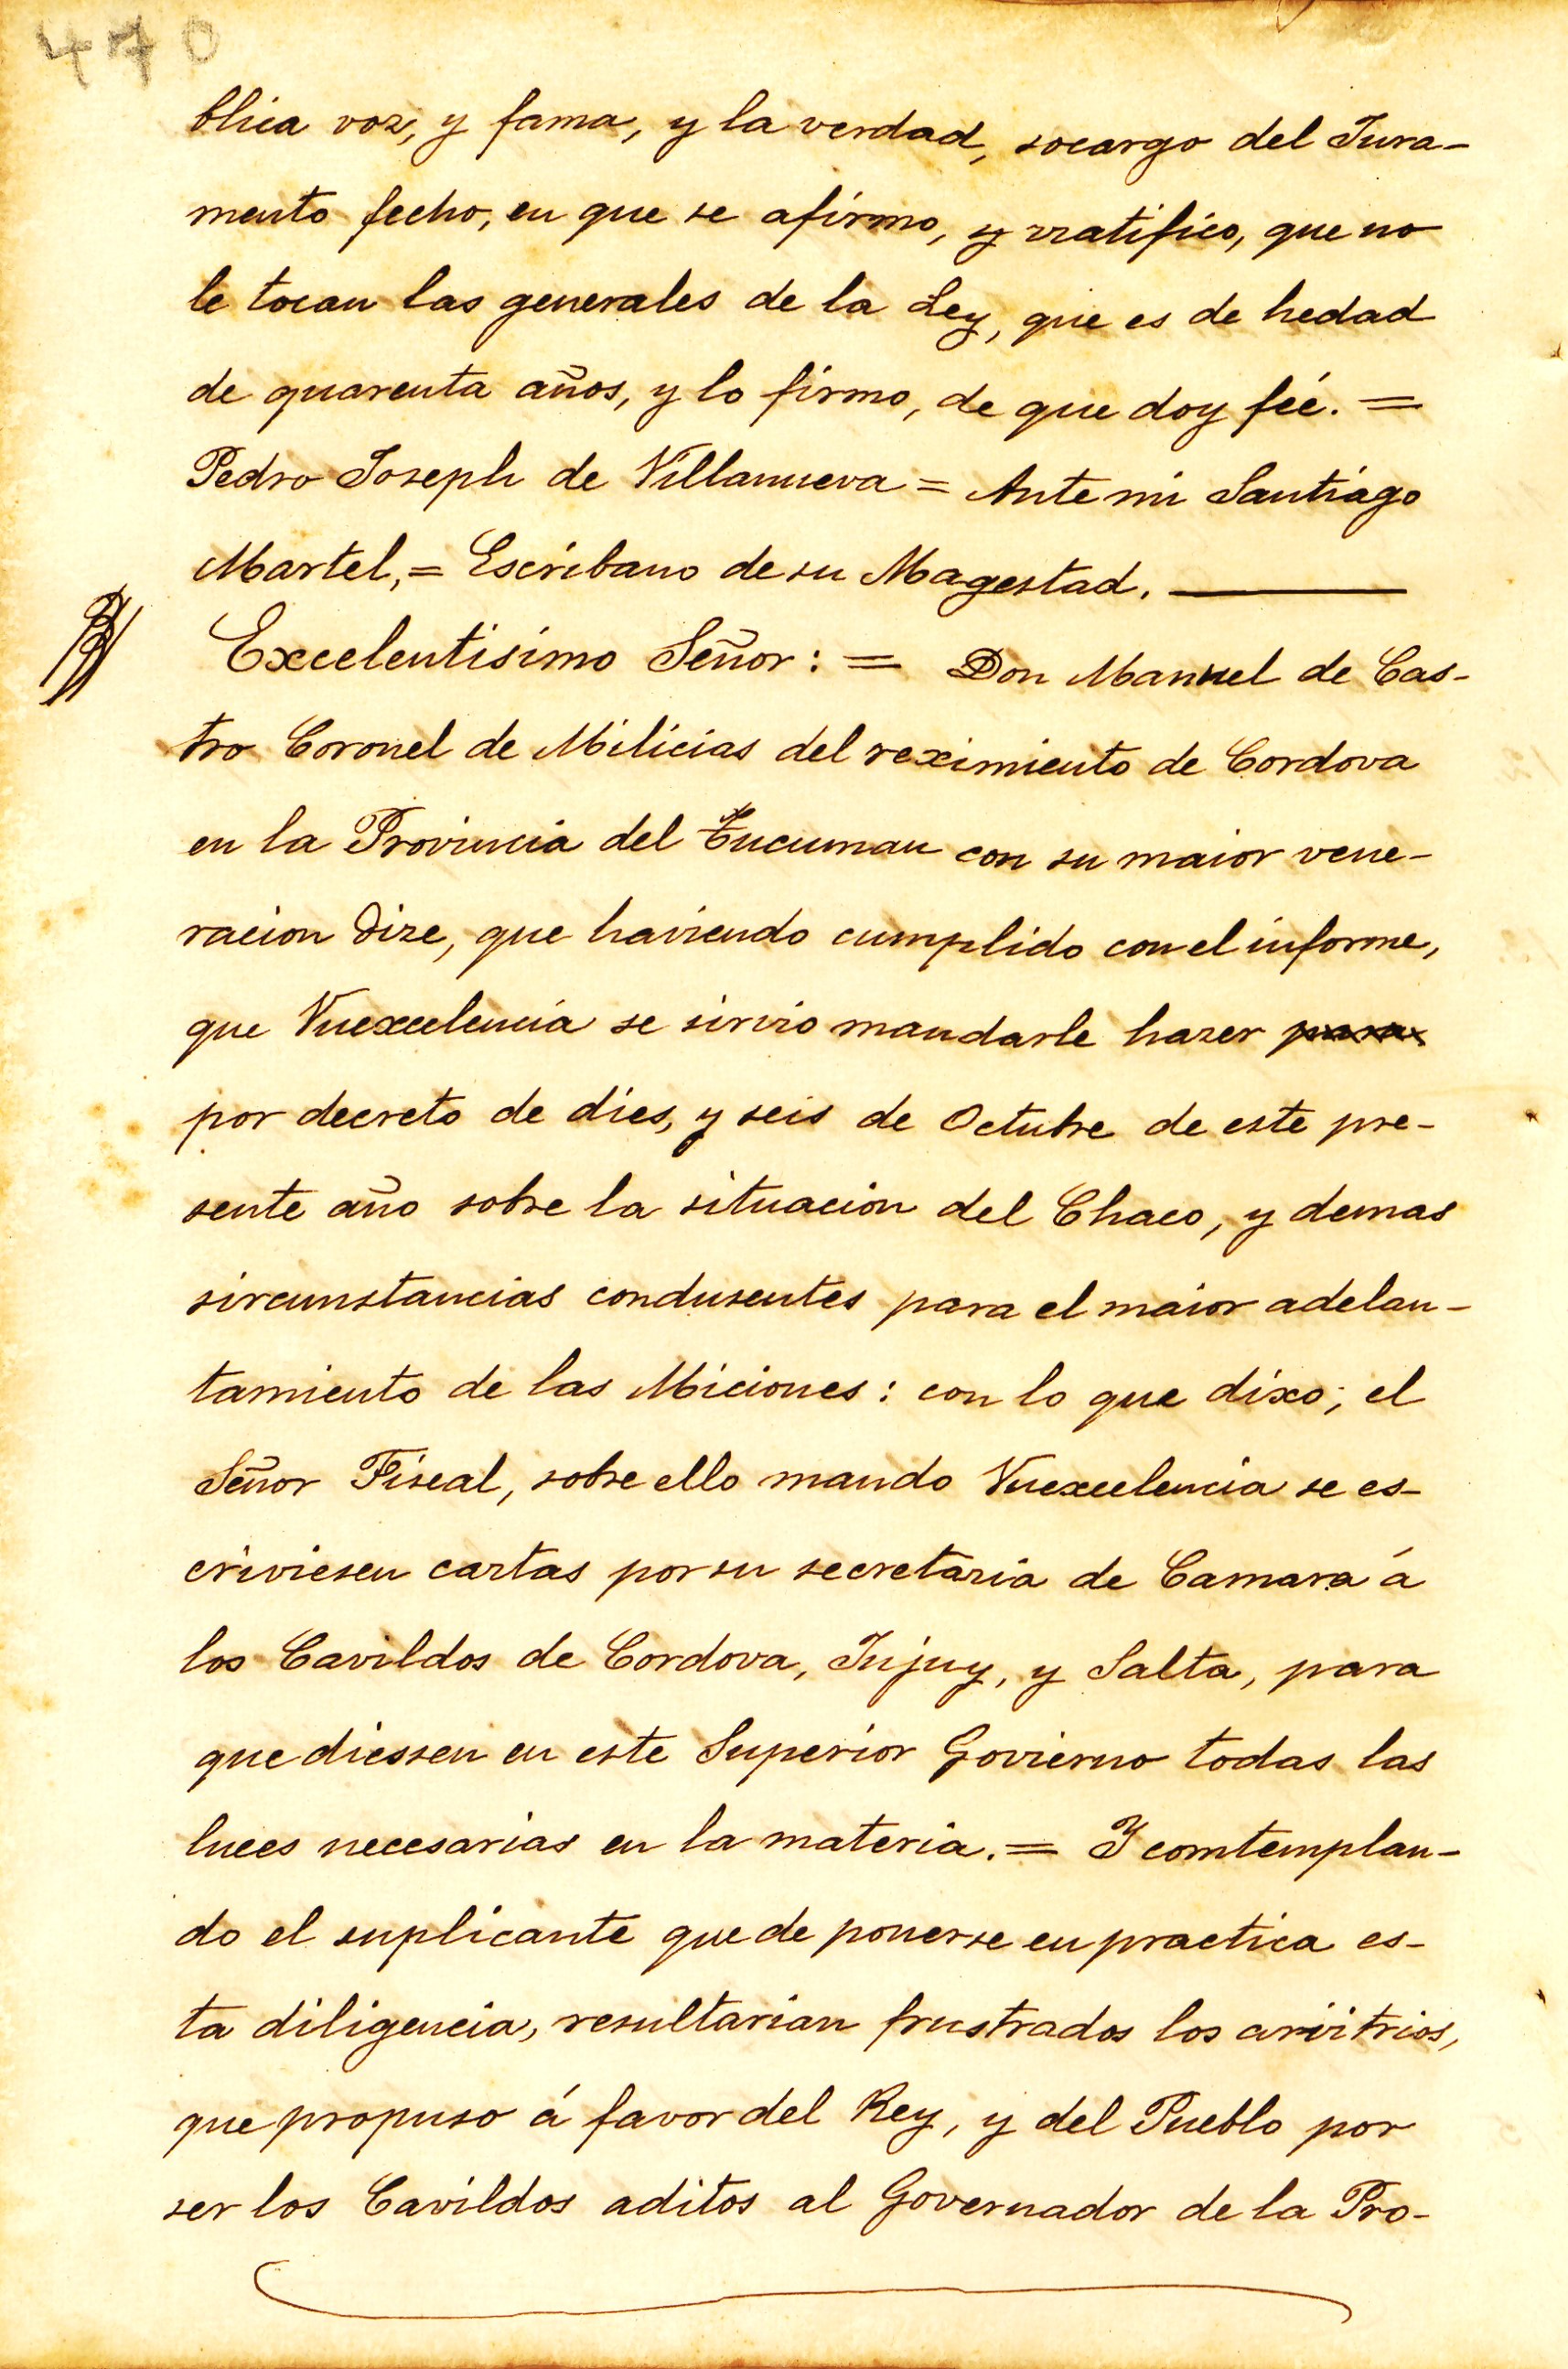 470
blica voz, y fama, y la verdad, socargo del Jura-
mento fecho, en que se afirmo, y rratifico, que no
le tocan las generales de la Ley, que es de hedad
de quarenta años, y lo firmo, de que doy feé. =
Pedro Joseph de Villanueva = Ante mi Santiago
Martel, = Escribano de su Magestad.
Excelentisimo Señor: = Don Manuel de Cas-
tro Coronel de Milicias del reximiento de Cordova
en la Provincia del Tucuman con su maior vene-
racion dize, que haviendo cumplido con el informe,
que Vuexcelencia se sirvio mandarle hazer para
por decreto de dies, y seis de Octubre de este pre-
sente año sobre la situacion del Chaco, y demas
sircunstancias condusentes para el maior adelan-
tamiento de las Miciones: con lo que dixo; el
Señor Fiscal, sobre ello mando Vuexcelencia se es-
criviesen cartas por su secretaria de Camara á
los Cavildos de Cordova, Jujuy, y Salta, para
que diessen en este Superior Govierno todas las
luces necesarias en la materia. = Y comtemplan-
do el suplicante que de ponerse en practica es-
ta diligencia, resultarian frustrados los arvitrios,
que propuso á favor del Rey, y del Pueblo por
ser los Cavildos aditos al Governador de la Pro-